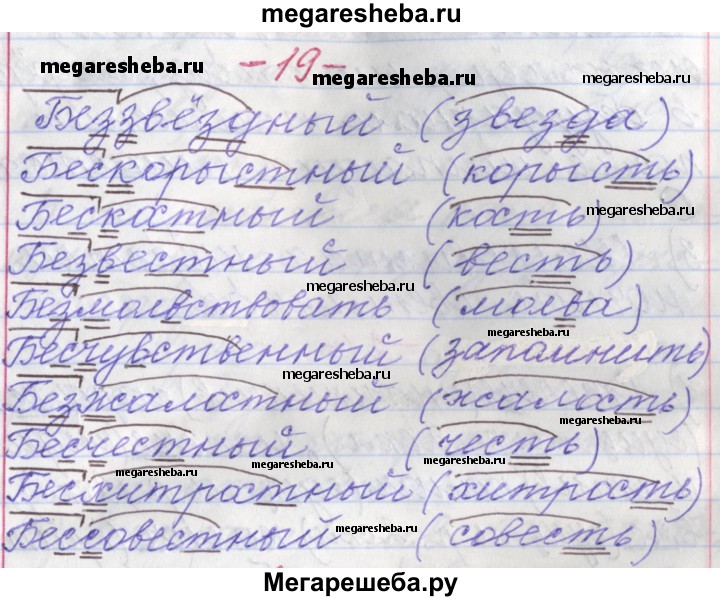 megaresheba.ru
megaresheba.ru - 19 - megaresheba.ru megaresheba.ru
Беззвёздный (звезда)
Бескорыстный (корысть)
Бескостный (кость) megaresheba.ru
Безвестный (весть)
megaresheba.ru
Безмолвствовать (молва)
megaresheba.ru
Бесчувственный (запомнить)
megaresheba.ru
Безжалостный (жалость)
megaresheba.ru
Бесчестный (честь)
megaresheba.ru megaresheba.ru megaresheba.ru
Бесхитростный (хитрость)
megaresheba.ru
Бессовестный (совесть)
megaresheba.ru
Мегарешеба.ру